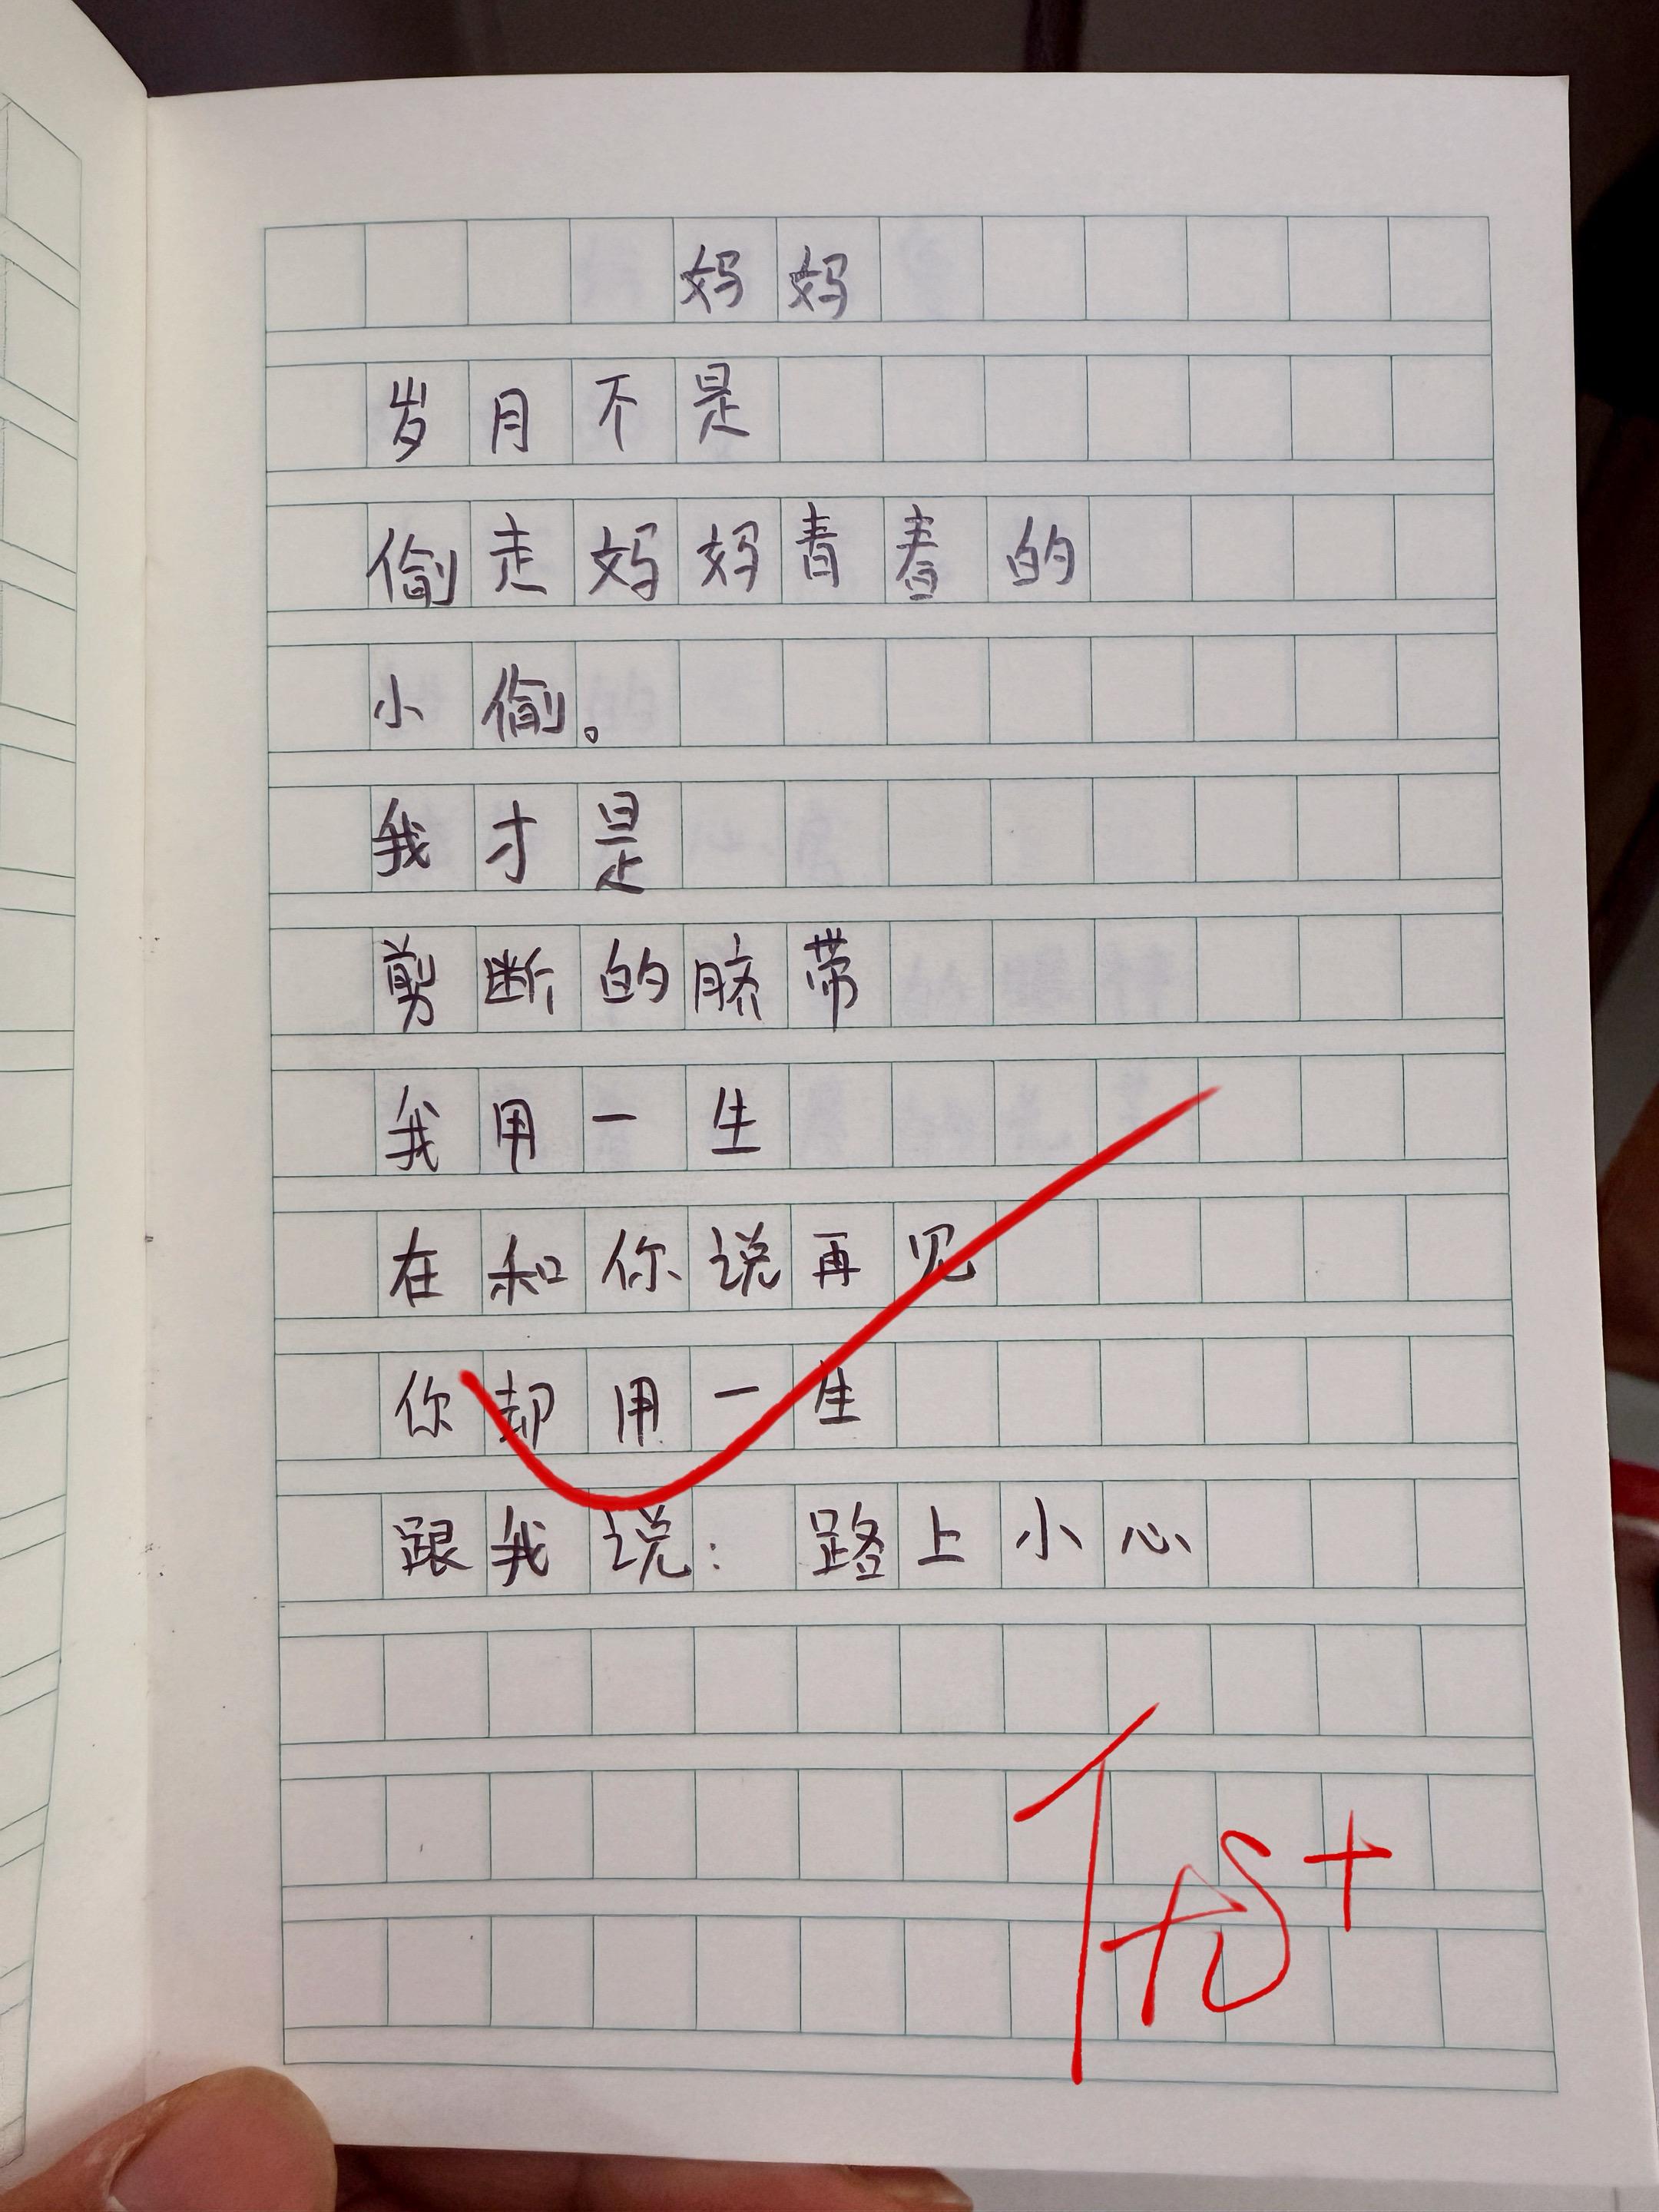 妈妈
岁月不是
偷走妈妈青春的
小偷。
我才是
剪断的脐带
我用一生
在和你说再见
你却用一生
跟我说：路上小心
优+